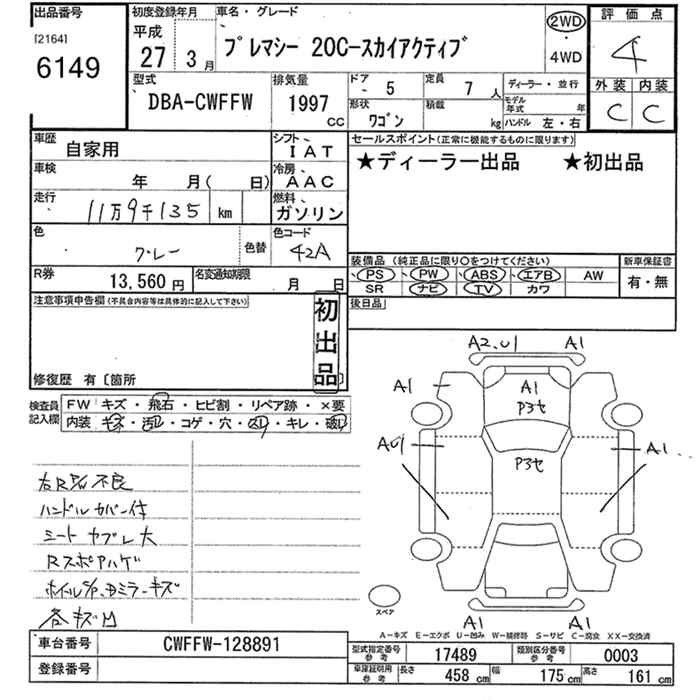 出品番号
[2164]
6149
初度登録年月
平成
27 3月
車名・グレード
プレマシー 20C-スカイアクティブ
2WD
・
4WD
評価点
4
外装 内装
C C
型式
DBA-CWFFW
排気量
1997
CC
ドア
5
定員
7人
形状
ワゴン
積載
kg
ディーラー・並行
モデル年式 年
ハンドル 左・右
車歴
自家用
シフト
IAT
車検
年 月( 日)
冷房
AAC
走行
11万9千135 km
燃料
ガソリン
色
グレー
色替
色コード
42A
R券
13,560円
名変通知期限
月 日
セールスポイント(正常に機能するものに限ります)
★ディーラー出品 ★初出品
装備品 (純正品に限り○をつけてください)
PS PW ABS エアB AW
SR ナビ TV カワ
新車保証書
有・無
後日品
注意事項申告欄(不具合内容等は具体的に記入して下さい)
初出品
修復歴 有〔箇所 〕
検査員記入欄
FW キズ・飛石・ヒビ割・リペア跡・×要
内装 キズ・汚レ・コゲ・穴・凹・キレ・破レ
不良
ハンドルカバー付
シートヤブレ大
Rスポアハゲ
キズ
各キズ凹
A2.U1 A1
A1 A1
P3セ
P3セ
A1
A1 A1
スペア
A-キズ E-エクボ U-凹み W-補修跡 S-サビ C-腐食 XX-交換済
車台番号
CWFFW-128891
登録番号
型式指定番号
参考
17489
類別区分番号
参考
0003
車庫証明用
参考
長さ 458cm 幅 175cm 高さ 161cm